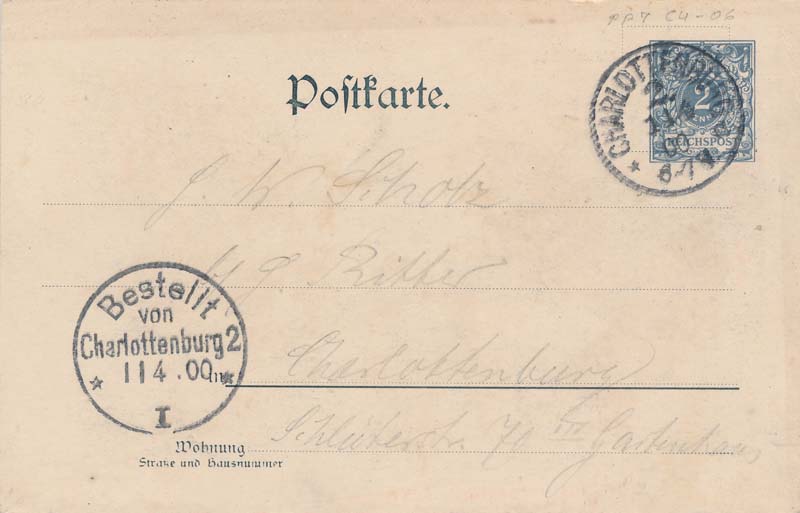 PP7 C4-06
Postkarte.
CHARLOTTENBURG
2
REICHSPOST
6-7N.
J. W. Scholz
Ritter
Charlottenburg
Schlüterstr. 70 III Gartenhaus
Bestellt
von
Charlottenburg 2
11 4 . 00
I
in
Wohnung
Straße und Hausnummer